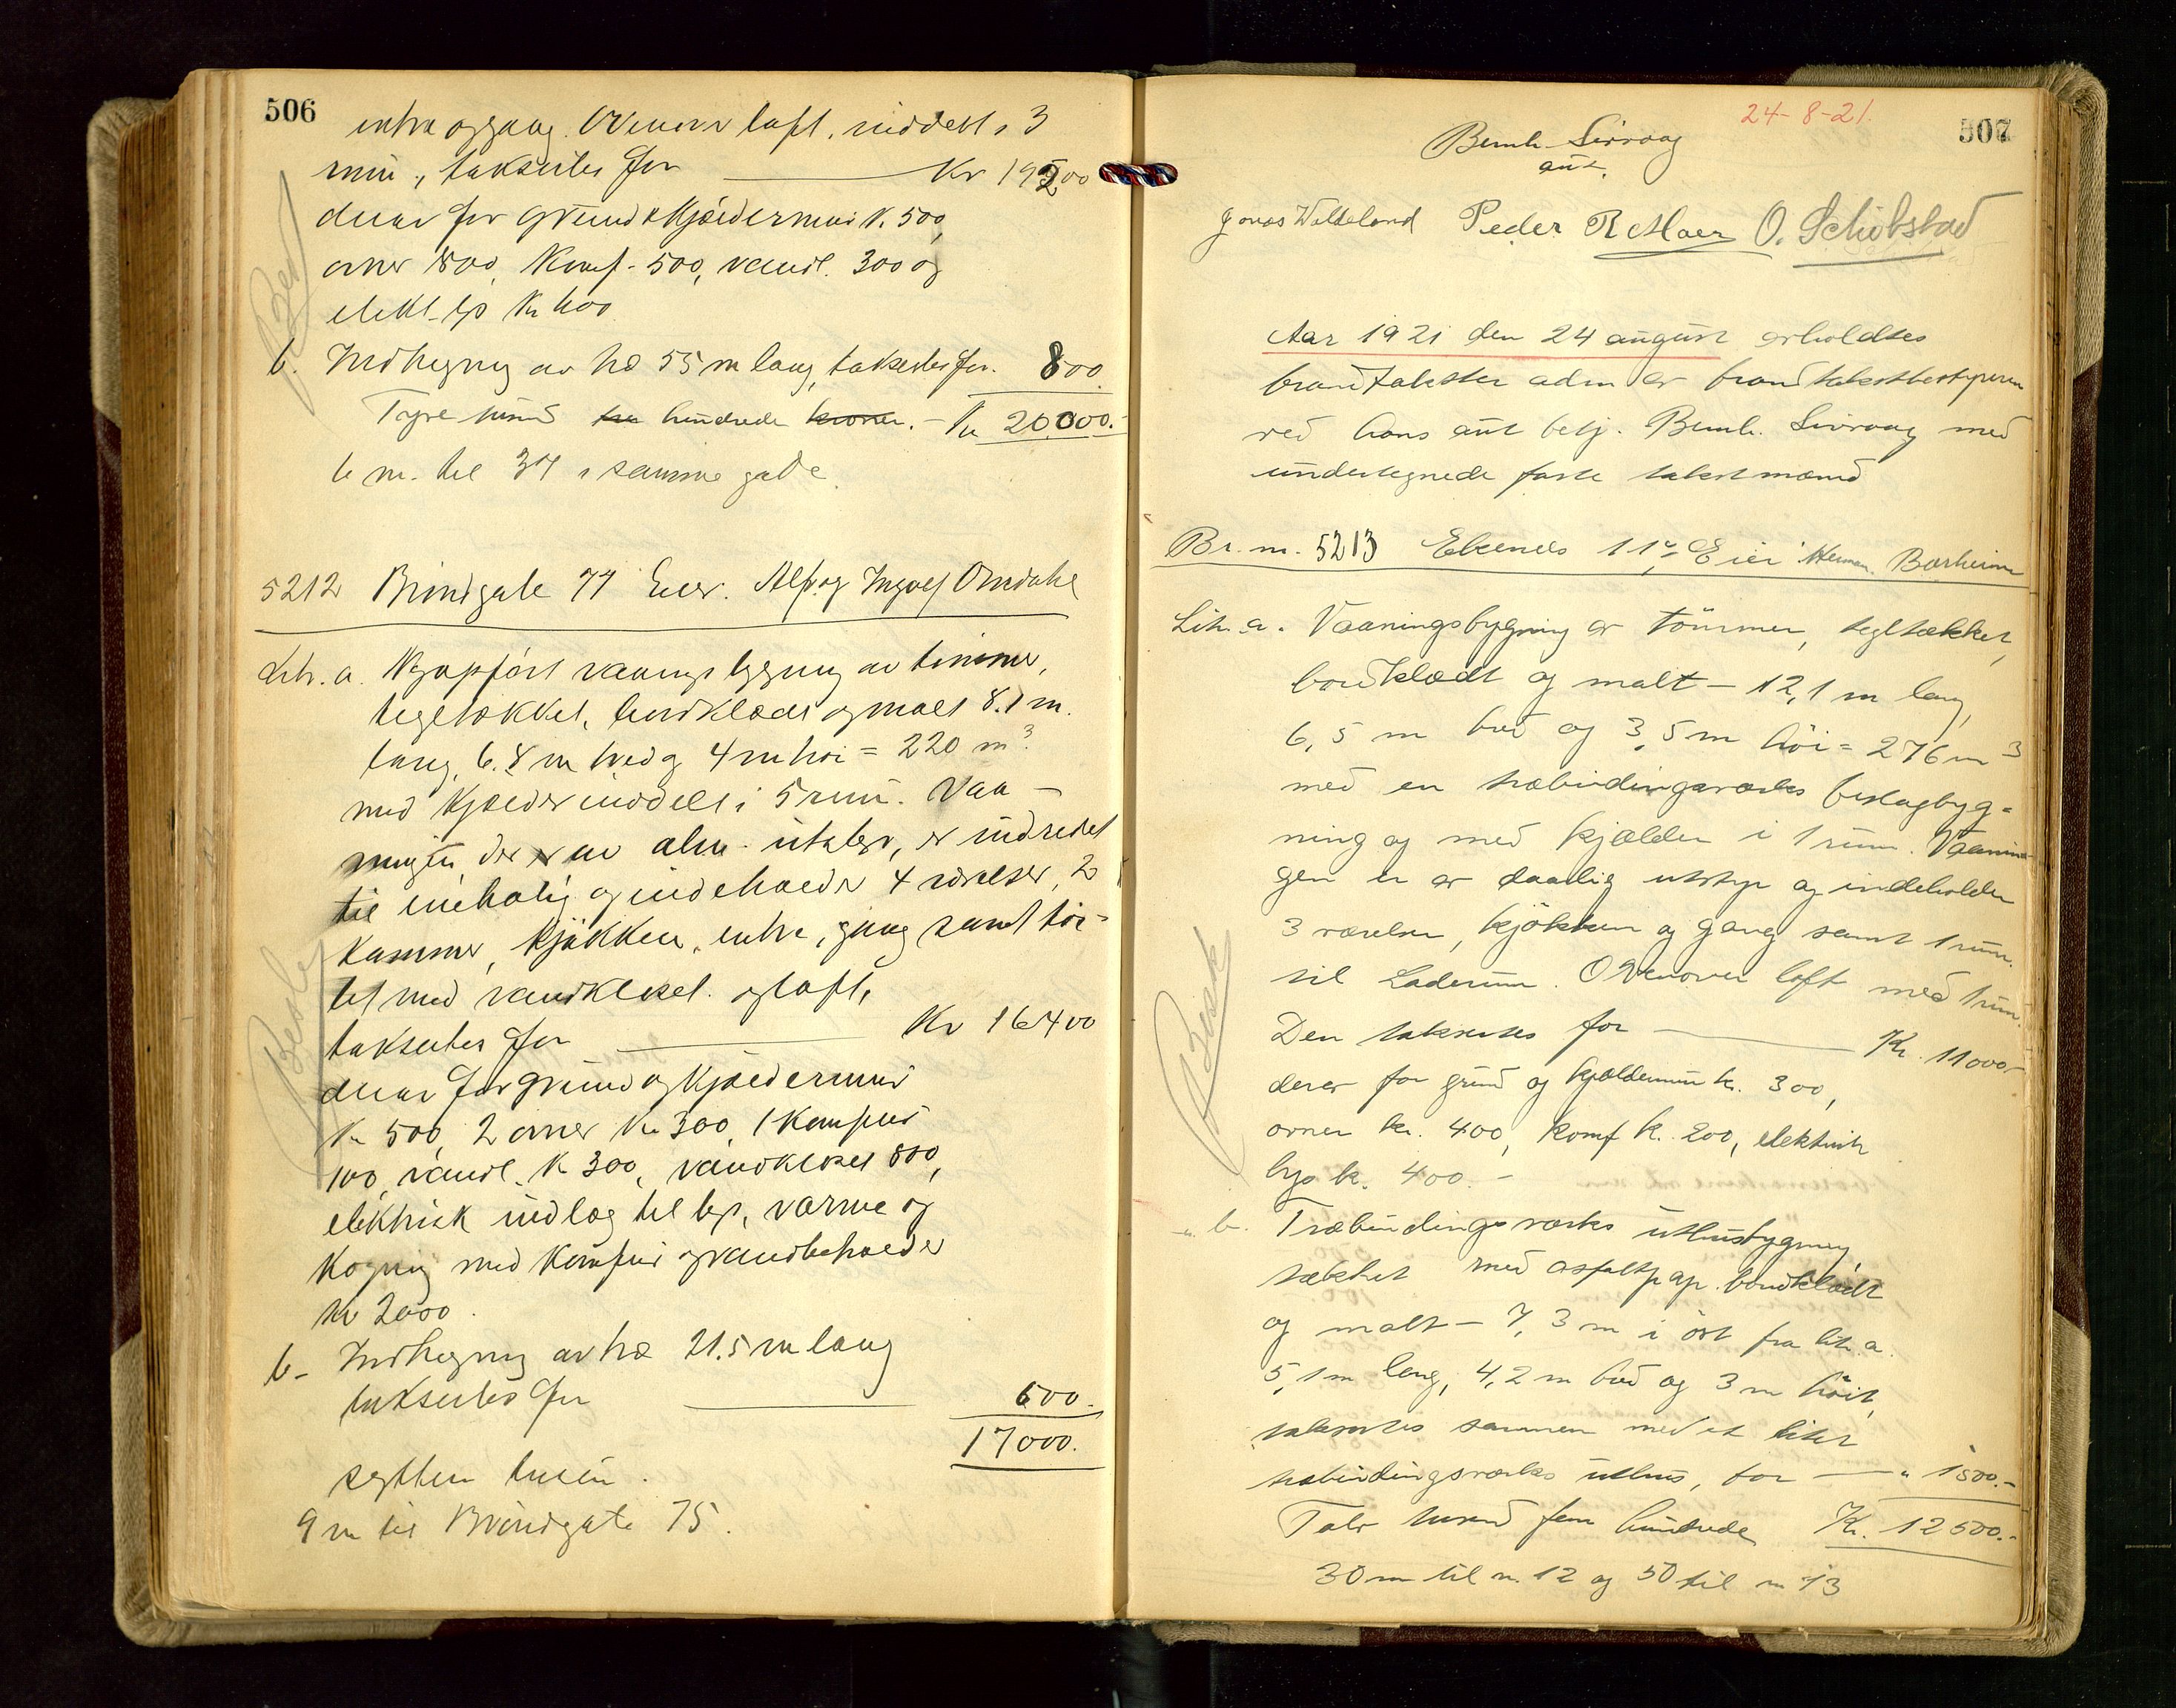 506
entre og gang. Ovenover loft, inddelt i 3
rum, takseres for Kr 19200
derav for grund & Kjældermur kr. 500,
ovner 800, Komf. 500, vandl. 300 og
elekt. lys Kr 400
b. Indhegning av træ 55 m lang, takseres for. 800.
Tyve tusind hundrede kroner. - Kr 20.000.-
6 m. til 37 i samme gade.
5212 Brinigate 77 Eier. Alf og Ingolf Omdahl
Litr. a. Nyopført vaaningsbygning av tømmer,
teglækket, bordklædt og malt 8.1 m.
lang, 6.8 m bred og 4 m høi = 220 m³.
med Kjælder inddelt i 5 rum. Vaa-
ningen, der er av alm. utstyr, er indredet
til enebolig og indeholder 4 værelser, 2
Kammer, Kjøkken, entre, gang samt toi-
let med vandkloset og loft,
takseres for Kr 16400
derav for grund og Kjældermur
Kr 500, 2 ovner Kr 300, 1 Komfur
100, vandl. Kr 300, vandkloset 800,
elektrisk indlæg til lys, varme og
Kogning med Komfur og vandbeholder
Kr 2000.
b- Indhegning av træ 21.5 m lang
takseres for 600.
17000.
sytten tusin.
9 m til Brinigate 75.
24-8-21.
507
Bernh. Sirvaag
aut.
Jonas Waldeland Peder R Moen O. Schibstad
Aar 1921 den 24 august avholdtes
brandtakster adm av brandtakstbestyreren
ved hans aut betj. Bernh. Sirvaag med
undertegnede faste takstmænd
Br. nr. 5213 Ekenæs 11 Eier Herman. Barheim
Litr. a. Vaaningsbygning av tömmer, tegltækket,
bordklædt og malt - 12,1 m lang,
6,5 m bred og 3,5 m höi = 276 m³
med en træbindingsværks beslagbyg=
ning og med kjælder i 1 rum. Vaanin-
gen er av daarlig utstyr og indeholder
3 værelser, kjökken og gang samt 1 rum
til Laderum. Ovenover loft med 1 rum.
Den takseres for Kr. 11000.-
derav for grund og kjældermur kr. 300,
ovner kr. 400, komf k. 200, elektrisk
lys k. 400.-
-"- b. Træbindingsværks uthusbygning,
tækket med asfaltpap. bordklædt
og malt - 7,3 m i öst fra litr. a.
5,1 m lang, 4,2 m bred og 3 m höit,
takseres sammen med et litet
træbindingsværks uthus, for " 1500.-
Tolv tusend fem hundrede Kr. 12500.-
30 m til n. 12 og 50 til n 13